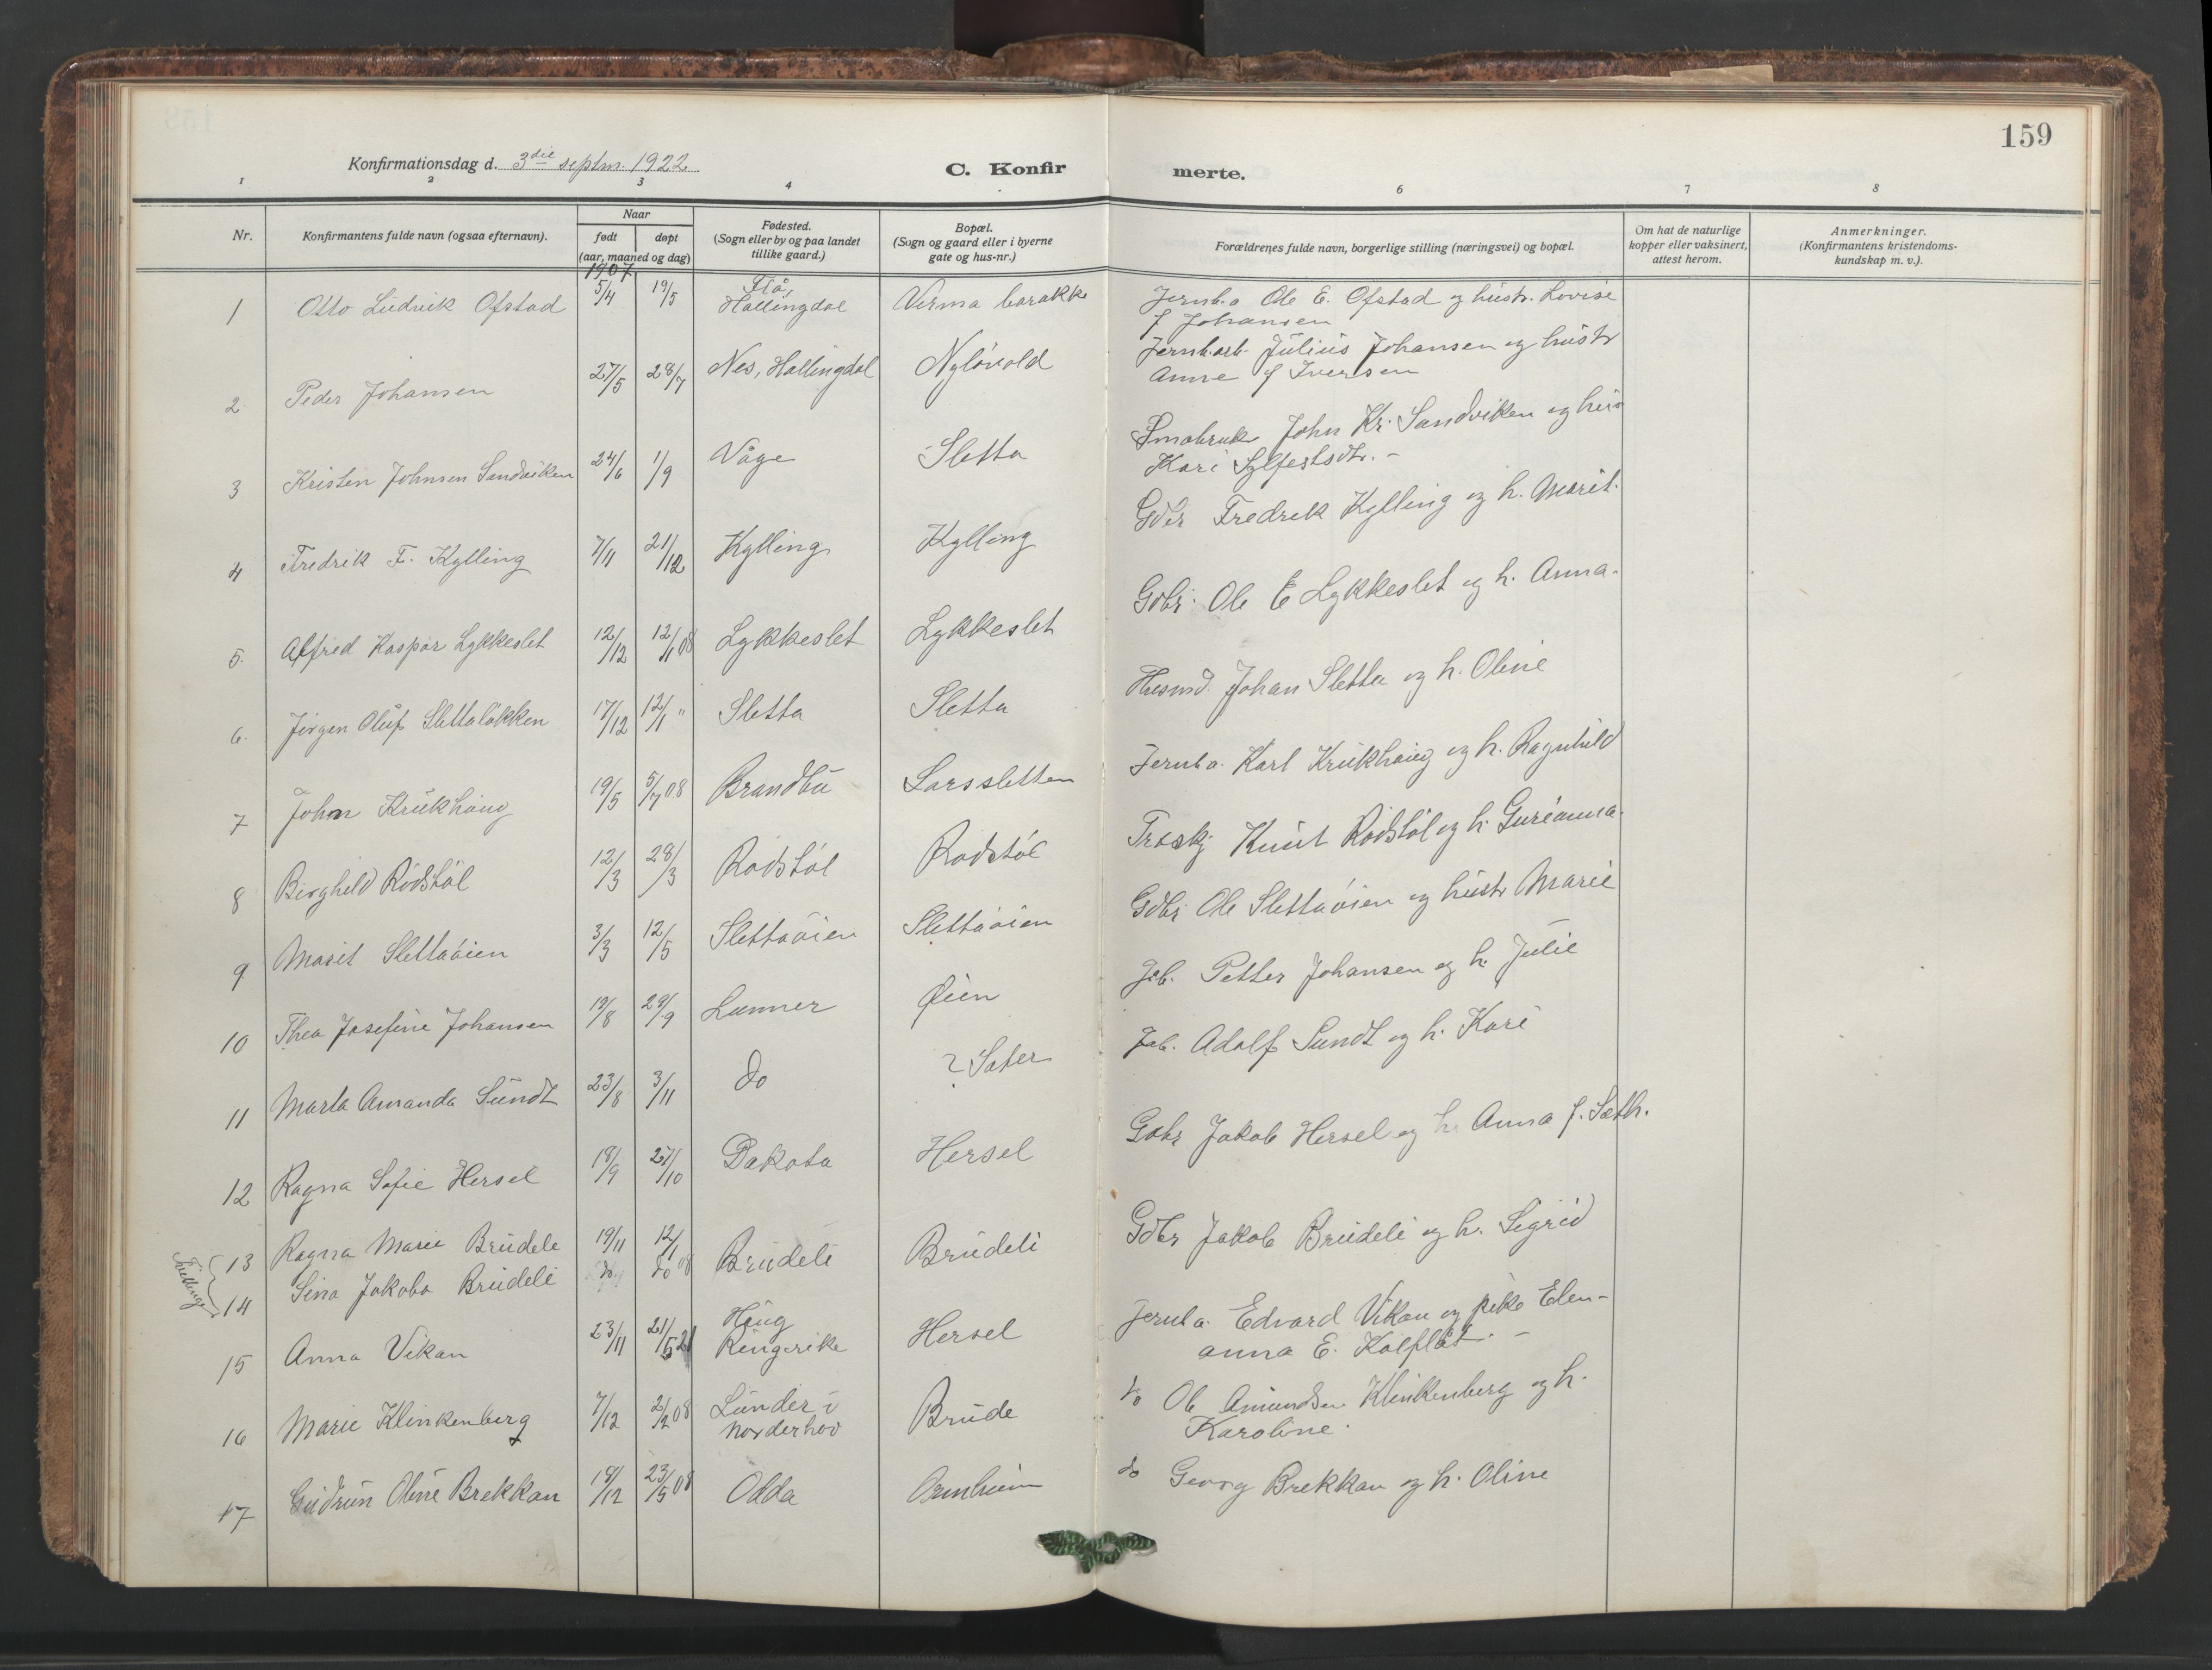 159
Konfirmationsdag d. 3die septm. 1922
C. Konfirmerte.
1 2 3 4 6 7 8
Nr. Konfirmantens fulde navn (ogsaa efternavn). Naar født døpt (aar, maaned og dag) Fødested. (Sogn eller by og paa landet tillike gaard.) Bopæl. (Sogn og gaard eller i byerne gate og hus-nr.) Forældrenes fulde navn, borgerlige stilling (næringsvei) og bopæl. Om hat de naturlige kopper eller vaksinert, attest herom. Anmerkninger. (Konfirmantens kristendomskundskap m. v.).
1907
1 Otto Ludvik Ofstad 5/4 19/5 Flå, Hallingdal Verma barakke Jernb.a Ole E. Ofstad og hustr. Lovise f Johansen
2. Peder Johansen 27/5 28/7 Nes, Hallingdal Nylövold Jernb.arb. Julius Johansen og hustr Anne f Iversen
3 Kristen Johnsen Sandviken 24/6 1/9 Våge Sletta Smabruk John Kr. Sandviken og hus Kari Sylfestsdtr. -
4 Fredrik F. Kylling 7/11 21/12 Kylling Kylling Gdbr Fredrik Kylling og h. Marit.
5. Alfred Kaspar Lykkeslet 12/12 12/1 08 Lykkeslet Lykkeslet Gdbr. Ole E Lykkeslet og h. Anna.
6. Jörgen Oluf Slettaløkken 17/12 12/1 " Sletta Sletta Husmd. Johan Sletta og h. Oline
7 John Krukhaug 19/5 5/7 08 Brandbu Larssletten Jernb.a. Karl Krukhaug og h. Ragnhild
8 Borghild Rödstöl 12/3 28/3 Rödstöl Rödstöl Træskj Knut Rödstöl og h. Gurianna.
9 Marit Slettaöien 3/3 12/5 Slettaöien Slettaöien Gdbr. Ole Slettaöien og hustr Marie
10 Thea Josefine Johansen 19/8 29/9 Lunner Øien Jab. Petter Johansen og h. Julie
11 Marta Amanda Sundt 23/8 3/11 do ? Sater Jab. Adolf Sundt og h. Kari
12 Ragna Sofie Hersel 18/9 27/10 Dakota Hersel Gdbr Jakob Hersel og h. Anna f. Sæth.
Tvillinger
13 Ragna Marie Brude­li 19/11 12/1 08 Brudeli Brudeli Gdbr Jakob Brudeli og h. Sigrid
14 Sina Jakoba Brudeli do do
15 Anna Vikan 23/11 21/5 21 Haug Ringerike Hersel Jernb.a. Edvard Vikan og pike Elen- anna E. Kalflåt. -
16 Marie Klinkenberg 7/12 2/2 08 Lunder i Norderhov Brude do Ole Amundsen Klinkenberg og h. Karoline.
17 Gudrun Oline Brekkan 18/12 23/5 08 Odda Ormheim do Georg Brekkan og h. Oline